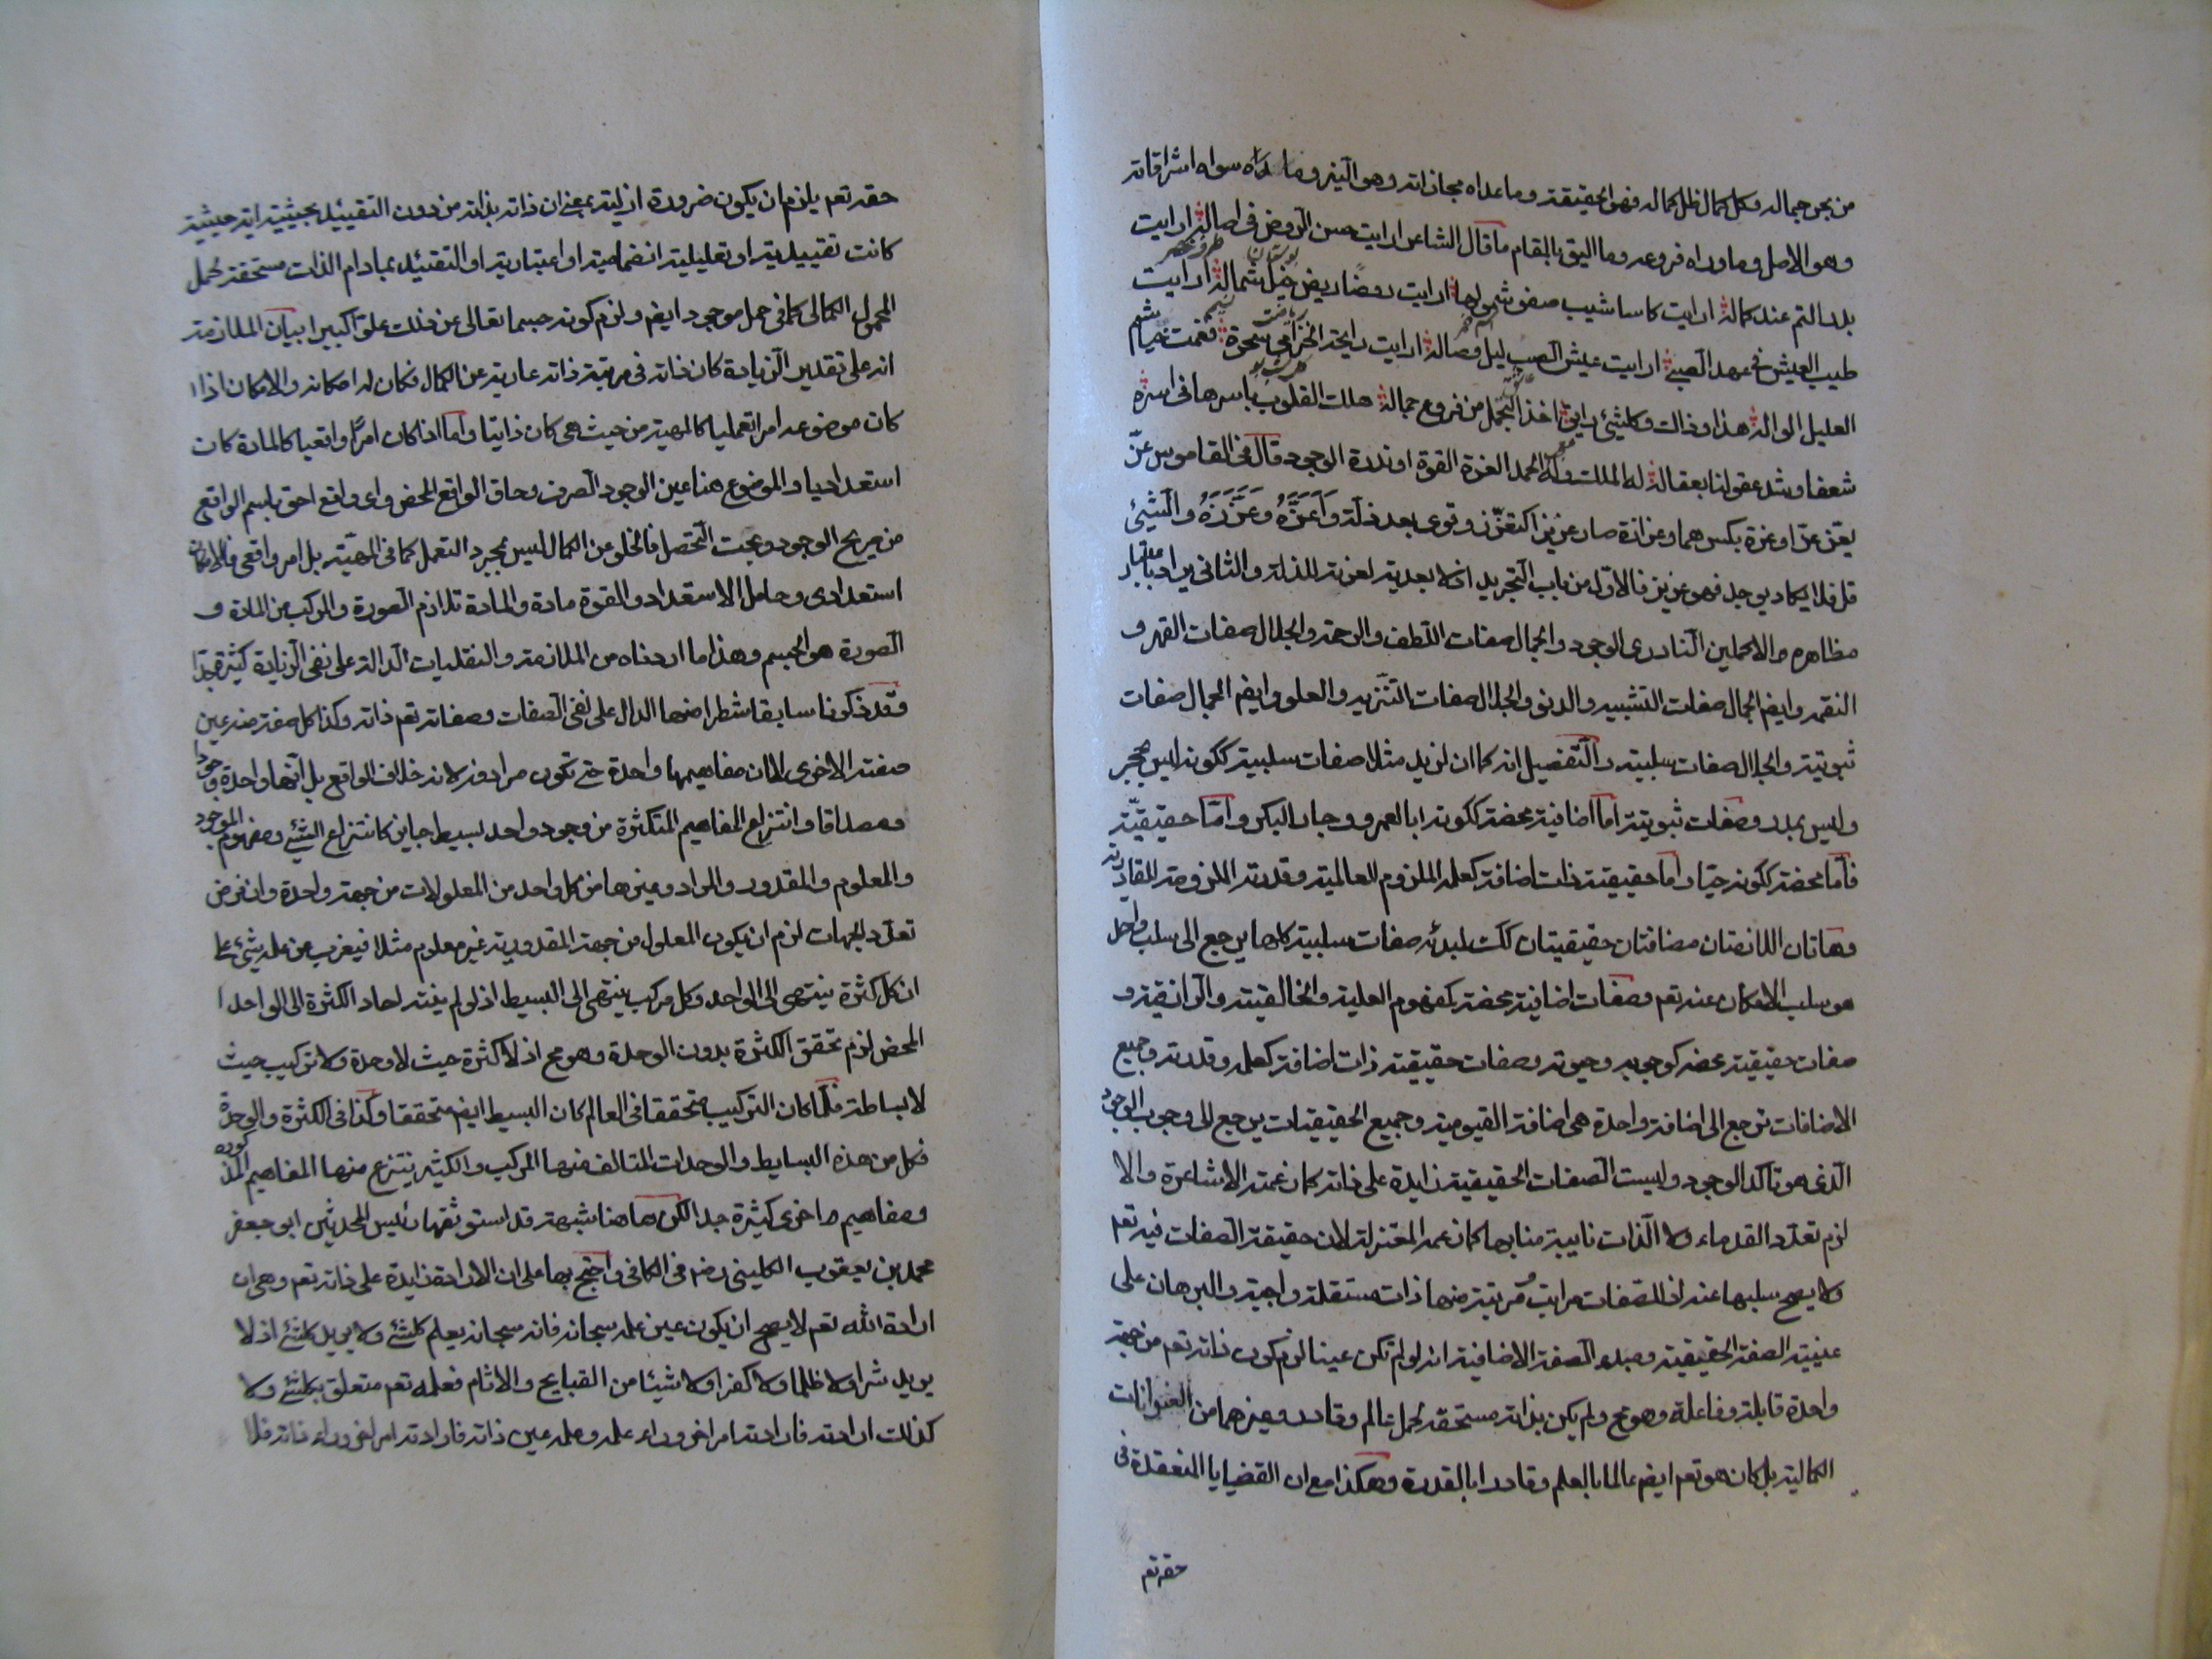 من بحر جماله وكل كمال ظل كماله فهو الحقيقة وما عداه مجازاته وهو النير وما سواه اشراقاته
وهو الاصل وما وراه فروعه وما اليق بالمقام ما قال الشاعر ارايت حسن الروض في اصاله ارايت
بدر التم عند كماله ارايت كاسا شيب صفو شمولها ارايت روضا ريض خيل شماله ارايت
طيب العيش في عهد الصبي ارايت عيش الصب ليل وصاله ارايت رايحة الخزامي سحرة فغمت خياشم
العليل الواله هذا وذاك وكلشئ رايق اخذ التجمل من فروع جماله هلك القلوب باسرها في اسره
شعفا وشد عقولنا بعقاله له الملك وله الحمد العزة القوة او ندرة الوجود قال في القاموس عزّ
يعزّ عزا وعزة بكسرهما وعزازة صار عزيزا كتعزّز وقوى بعد ذلة وَاَعَزَّهُ وعَزَّزَهُ والشيئ
قل فلا يكاد يوجد فهو عزيز فالاول من باب التجريد اذ لا بعدية لعزته للذلة والثاني باعتبار
مظاهره الاكملين النادرى الوجود والجمال صفات اللطف والرحمة والجلال صفات القهر و
النقمة وايض الجمال صفات التشبيه والدنو والجلال صفات التنزيه والعلو وايض الجمال صفات
ثبوتية والجلال صفات سلبية والتفصيل انه كما ان لزيد مثلا صفات سلبية ككونه ليس بحجر
وليس بمدر وصفات ثبوتية اما اضافية محضة ككونه ابا لعمرو وجار البكر واما حقيقيّة
فاما محضة ككونه حيّا واما حقيقية ذات اضافة كعلمه الملزوم للعالمية وقدرته الملزومة للقادرية
وهاتان اللازمتان مضافتان حقيقيتان كك لمبدئه صفات سلبية كلها يرجع الى سلب واحد
هو سلب الامكان عنه تعم وصفات اضافية محضة كمفهوم العلية والخالقية والرازقية و
صفات حقيقية محضة كوجوبه وحيوته وصفات حقيقية ذات اضافة كعلمه وقدرته وجميع
الاضافات ترجع الى اضافة واحدة هى اضافة القيومية وجميع الحقيقيات يرجع الى وجوب الوجود
الذى هو تاكد الوجود وليست الصفات الحقيقية زايدة على ذاته كما زعمته الاشاعرة والا
لزم تعدد القدماء ولا الذات نايبة منابها كما زعمه المعتزلة لان حقيقة الصفات فيه تعم
ولا يصح سلبها عنه اذ للصفات مراتب ومرتبة منها ذات مستقلة واجبة والبرهان على
عينية الصفة الحقيقية ومبدء الصفة الاضافية انه لو لم تكن عينا لزم كون ذاته تعم من جهة
واحدة قابلة وفاعلة وهو مح ولم يكن بذاته مستحقة لحمل عالم وقادر وغيرهما من العنوانات
الكمالية بل كان هو تعم ايضم عالما بالعلم وقادرا بالقدرة وهكذا مع ان القضايا المنعقدة في
حقه تعم
حقه تعم يلزم ان يكون ضرورة ازلية بمعنى ان ذاته بذاته من دون التقييد بحيثية اية حيثية
كانت تقييدية او تعليلية انضمامية او اعتبارية او التقييد بمادام الذات مستحقة لحمل
المحمول الكمالى كما في حمل موجود ايضم ولزم كونه جسما تعالى عن ذلك علوا كبيرا بيان الملازمة
انه على تقدير الزيادة كان ذاته في مرتبة ذاته عارية عن الكمال فكان له امكانه والامكان اذا
كان موضوعه امرا تعمليا كالمهية من حيث هى كان ذاتيا واما اذا كان امرًا واقعيا كالمادة كان
استعداديا والموضوع هنا عين الوجود الصرف وحاق الواقع المحض واى واقع احق باسم الواقعى
من صريح الوجود وبحت التحصل فالخلو عن الكمال ليس بمجرد التعمل كما في المهية بل امر واقعى فالامكان
استعدادى وحامل الاستعداد والقوة مادة والمادة تلازم الصورة والمركب من المادة و
الصورة هو الجسم وهذا ما اردناه من الملازمة والنقليات الدالة على نفى الزيادة كثيرة جدا
وقد ذكرنا سابقا شطرا منها الدال على نفى الصفات وصفاته تعم ذاته وكذا كل صفة منه عين
صفته الاخرى لا ان مفاهيمها واحدة حتى تكون مرادفة لانه خلاف الواقع بل انها واحدة وجودا
ومصداقا وانتزاع المفاهيم المتكثرة من وجود واحد بسيط جايز كانتزاع الشئ ومفهوم الموجود
والمعلوم والمقدور والمراد وغيرها من كل واحد من المعلولات من جهة واحدة وان فرض
تعدد الجهات لزم ان يكون المعلول من جهة المقدورية غير معلوم مثلا فيعزب عن علمه شئ على
ان كل كثرة ينتهى الى الواحد وكل مركب ينتهى الى البسيط اذ لو لم ينته احاد الكثرة الى الواحد
المحض لزم تحقق الكثرة بدون الوحدة وهو مح اذ لا كثرة حيث لا وحدة ولا تركيب حيث
لا بساطة فلما كان التركيب متحققا في العالم كان البسيط ايضم متحققا وكذا في الكثرة والوحدة
فكل من هذه البسايط والوحدات المتالف منها المركب والكثير ينتزع منها المفاهيم المذكورة
ومفاهيم اخرى كثيرة جدا لكن هاهنا شبهة قد استوثقها رئيس المحدثين ابى جعفر
محمد بن يعقوب الكلينى رضم في الكافى واحتج بها على ان الارادة زايدة على ذاته تعم وهى ان
ارادة الله تعم لا يصح ان يكون عين علمه سبحانه فانه سبحانه يعلم كلشئ ولا يريد كلشئ اذ لا
يريد شرا ولا ظلما ولا كفرا ولا شيئا من القبايح والاثام فعلمه تعم متعلق بكلشئ ولا
كذلك ارادته فارادته امر اخر وراء علمه وعلمه عين ذاته فارادته امر اخر وراء ذاته فلا